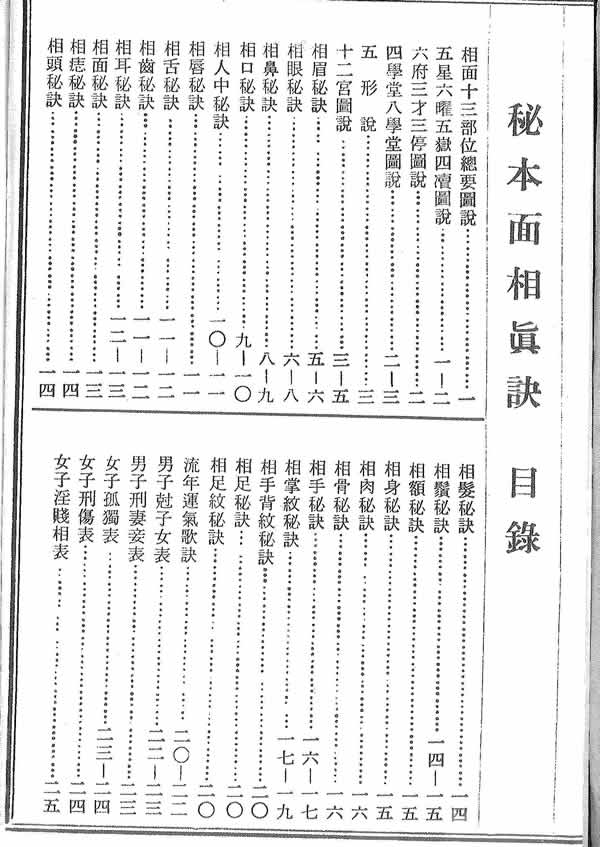 秘本面相眞訣 目錄
相面十三部位總要圖說……一
五星六曜五嶽四瀆圖說……一—二
六府三才三停圖說……二
四學堂八學堂圖說……二—三
五形說……三
十二宮圖說……三—五
相眉秘訣……五—六
相眼秘訣……六—八
相鼻秘訣……八—九
相口秘訣……九—一〇
相人中秘訣……一〇—一一
相唇秘訣……
相舌秘訣……一一—一二
相齒秘訣……一一—一二
相耳秘訣……一二—一三
相面秘訣……一三
相痣秘訣……一四
相頭秘訣……一四
相髮秘訣……一四
相鬚秘訣……一四—一五
相額秘訣……一五
相身秘訣……一五
相肉秘訣……一六
相骨秘訣……一六
相手秘訣……一六—一七
相掌紋秘訣……一七—一九
相手背紋秘訣……二〇
相足秘訣……二〇
相足紋秘訣……二〇
流年運氣歌訣……二〇—二二
男子尅子女表……二二—二三
男子刑妻妾表……二三
女子孤獨表……二三—二四
女子刑傷表……二四
女子淫賤相表……二五